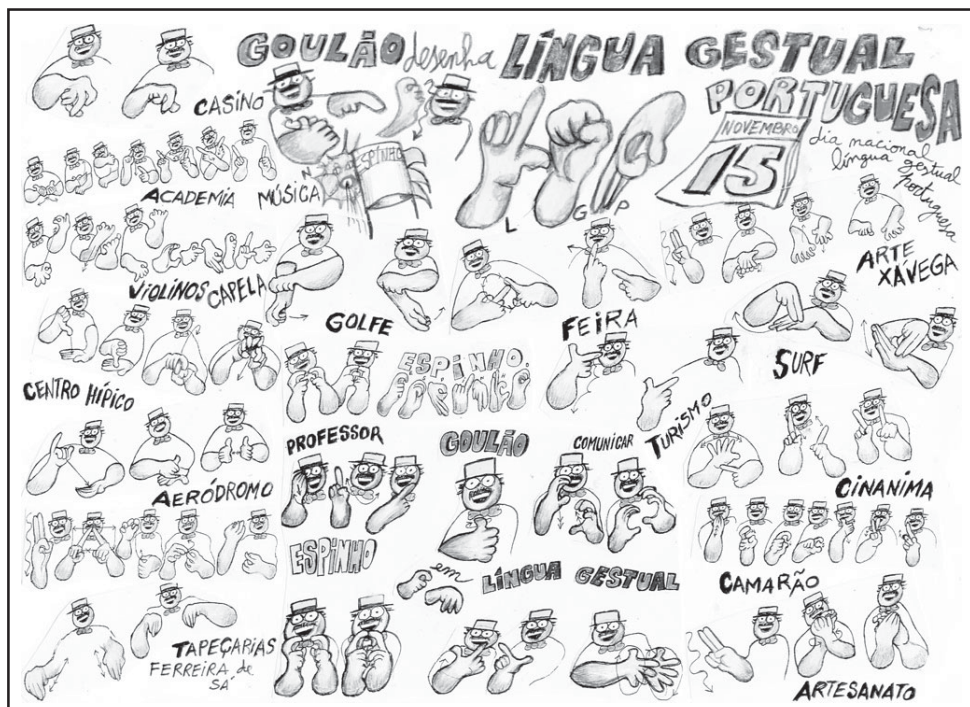 GOULÃO desenha LÍNGUA GESTUAL
PORTUGUESA
NOVEMBRO
15
dia nacional
língua gestual
portuguesa
CASINO
ESPINHO
N
L
G
P
ACADEMIA MÚSICA
VIOLINOS CAPELA
GOLFE
FEIRA
ARTE
XAVEGA
SURF
CENTRO HÍPICO
ESPINHO.
TURISMO
PROFESSOR
GOULÃO
COMUNICAR
AERÓDROMO
CINANIMA
ESPINHO
em LÍNGUA GESTUAL
CAMARÃO
TAPEÇARIAS
FERREIRA de
SÁ
ARTESANATO